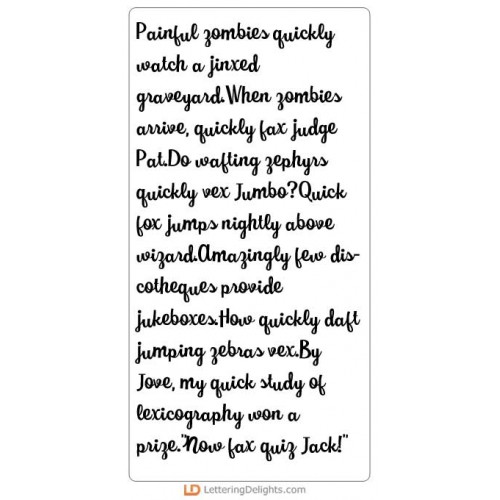 Painful zombies quickly
watch a jinxed
graveyard.When zombies
arrive, quickly fax judge
Pat.Do wafting zephyrs
quickly vex Jumbo?Quick
fox jumps nightly above
wizard.Amazingly few dis-
cotheques provide
jukeboxes.How quickly daft
jumping zebras vex.By
Jove, my quick study of
lexicography won a
prize."Now fax quiz Jack!"
LD LetteringDelights.com